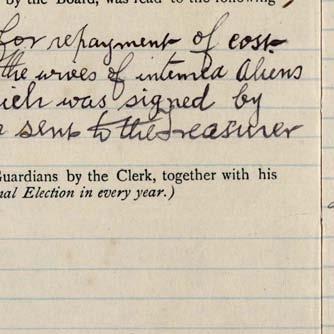 by the Board, was read to the following
for repayment of cost
the wives of interned Aliens
which was signed by
sent to the Treasurer
Guardians by the Clerk, together with his
nal Election in every year.)